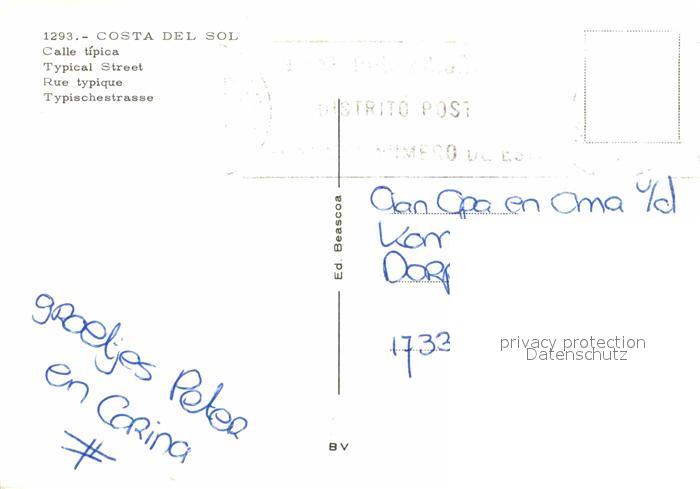 1293.- COSTA DEL SOL
Calle típica
Typical Street
Rue typique
Typischestrasse
DISTRITO POST
NUMERO DE ES
Ed. Beascoa
Aan Opa en Oma v/d
Kom
Dorp
1733
privacy protection
Datenschutz
groetjes Peter
en Carina
BV